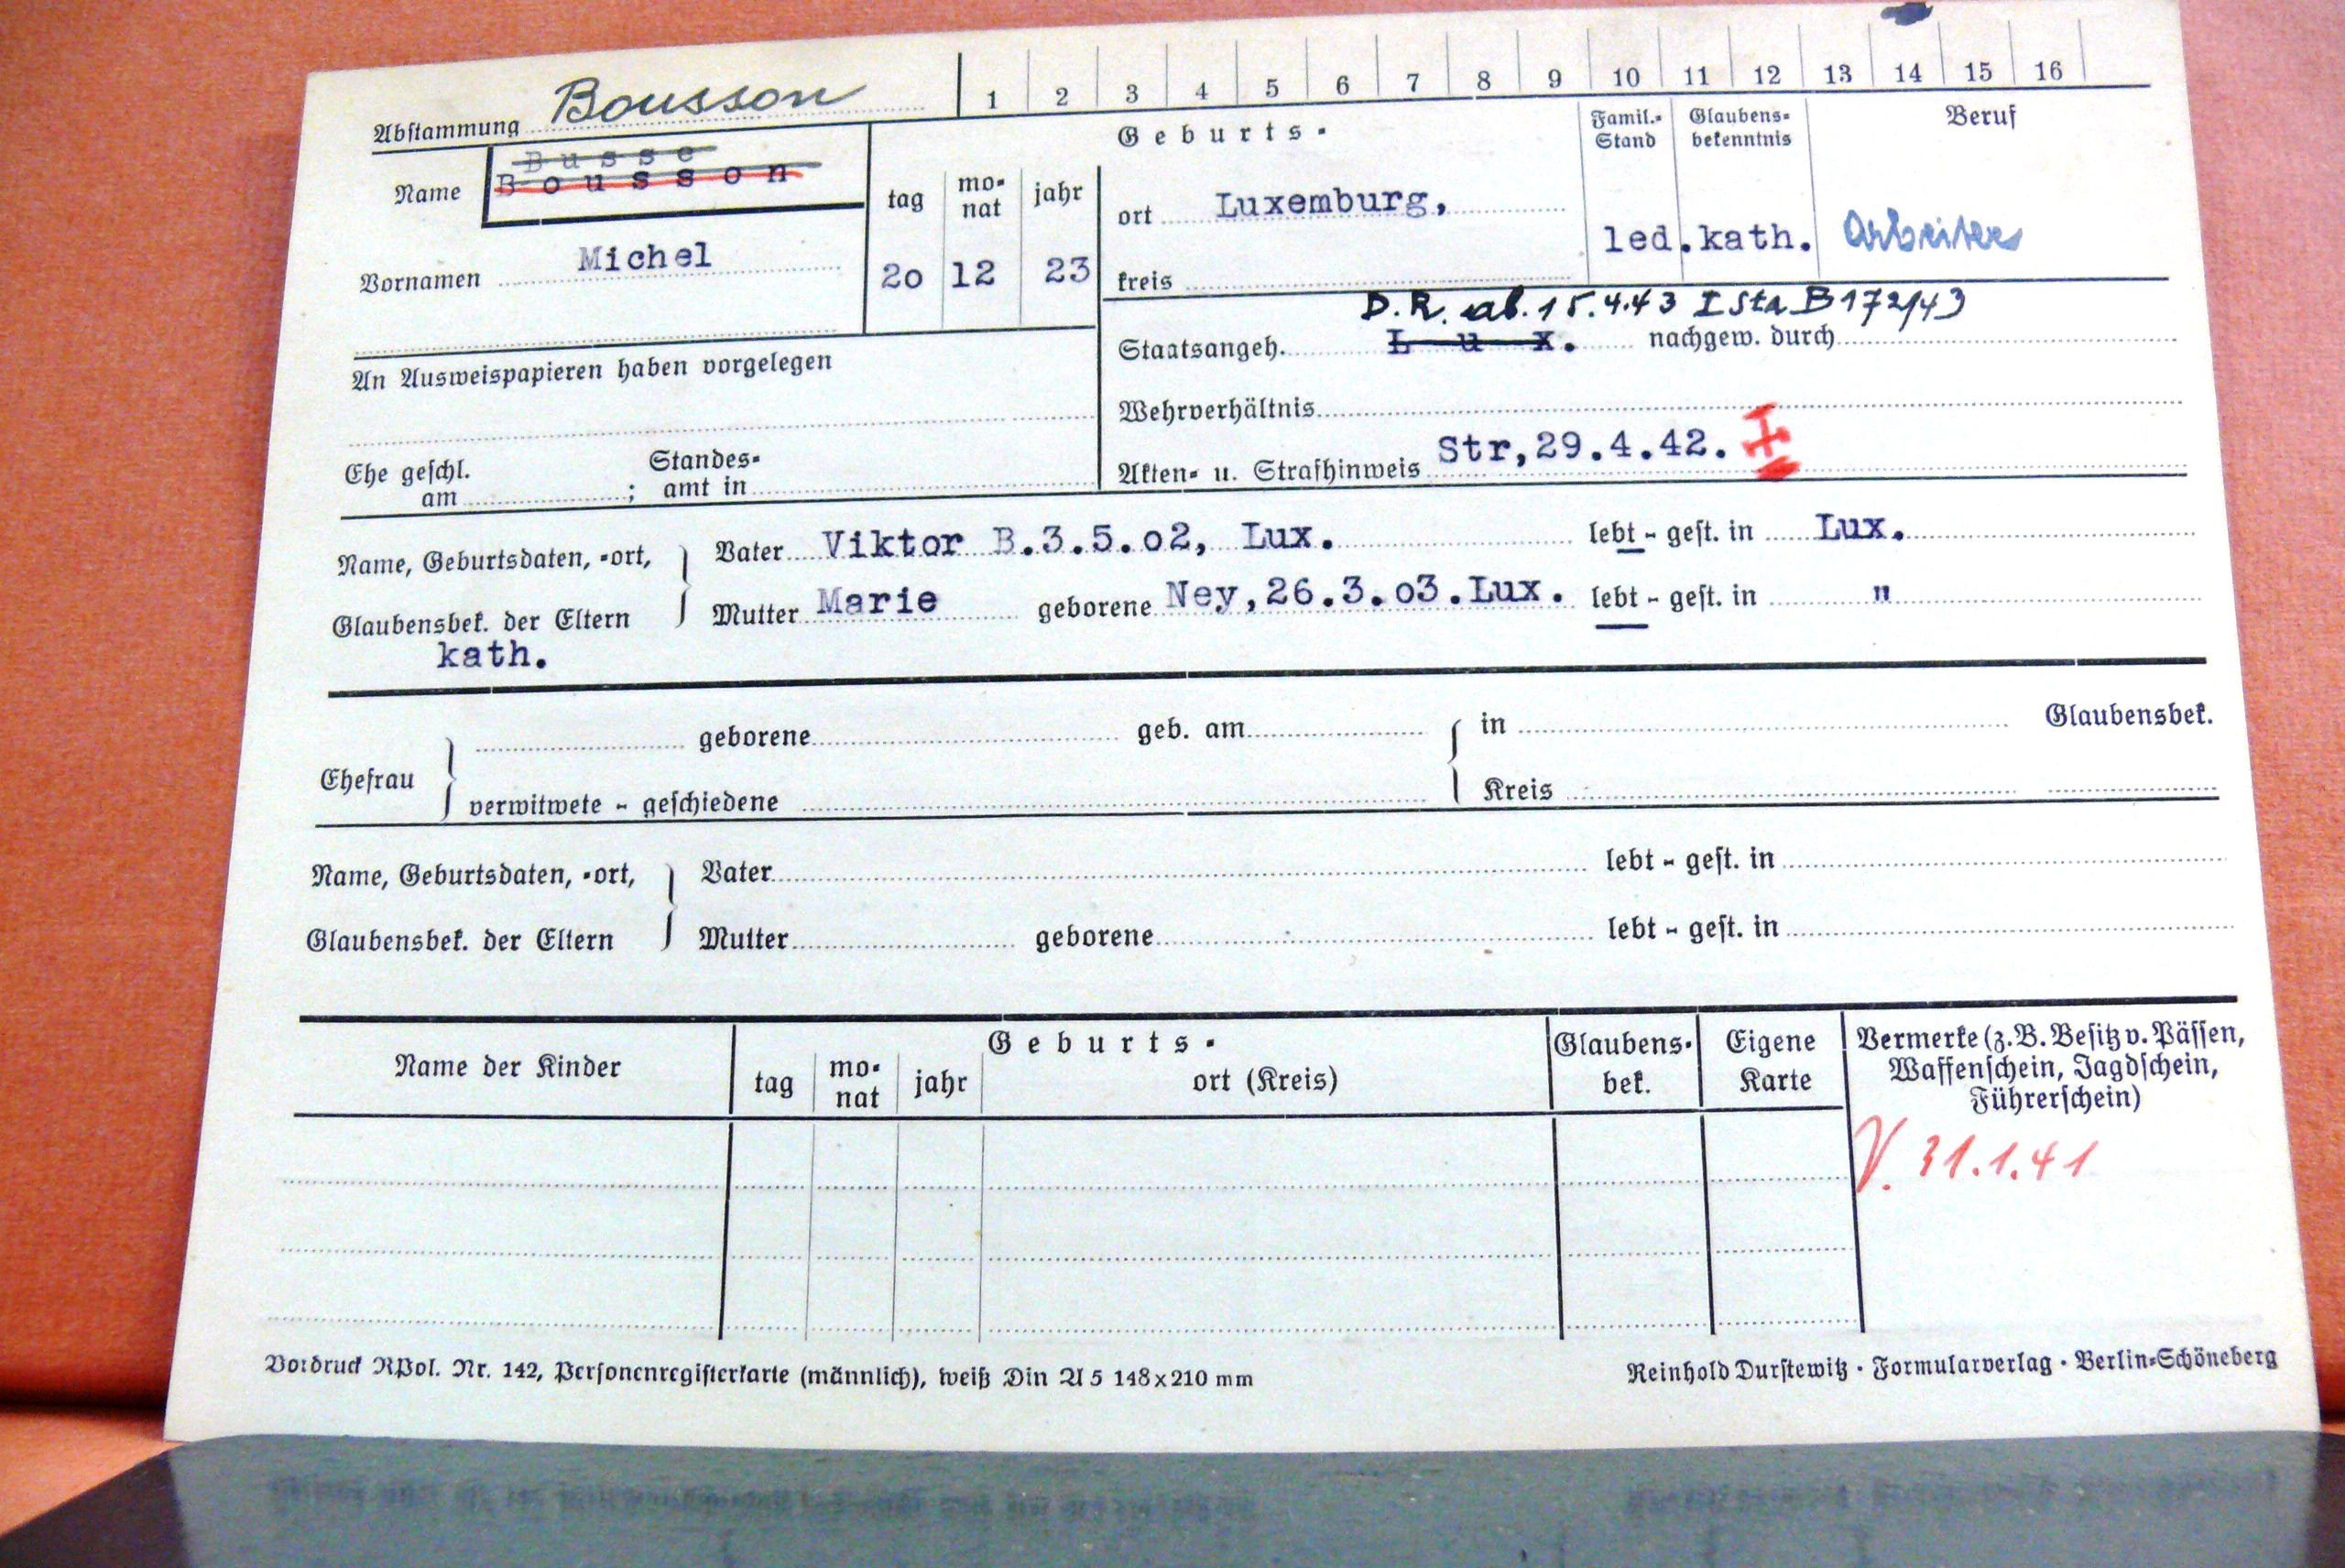 Abstammung Bousson
1 2 3 4 5 6 7 8 9 10 11 12 13 14 15 16
Name Busse
Bousson
Vornamen Michel
Geburts-
tag monat jahr
20 12 23
ort Luxemburg,
kreis
Famil.-Stand
led.
Glaubens-bekenntnis
kath.
Beruf
Arbeiter
An Ausweispapieren haben vorgelegen
D.R. ab. 15.4.43 I Sta. B 172/43
Staatsangeh. Lux. nachgew. durch
Wehrverhältnis
Akten- u. Strafhinweis Str, 29.4.42. I
Ehe geschl. am ; Standes-amt in
Name, Geburtsdaten, -ort,
Glaubensbek. der Eltern
kath.
Vater Viktor B.3.5.02, Lux. lebt - gest. in Lux.
Mutter Marie geborene Ney, 26.3.03. Lux. lebt - gest. in "
Ehefrau geborene geb. am in Glaubensbek.
verwitwete - geschiedene Kreis
Name, Geburtsdaten, -ort,
Glaubensbek. der Eltern
Vater lebt - gest. in
Mutter geborene lebt - gest. in
Name der Kinder
Geburts-
tag monat jahr ort (Kreis)
Glaubens-bek.
Eigene Karte
Vermerke (z.B. Besitz v. Pässen,
Waffenschein, Jagdschein,
Führerschein)
V. 31.1.41
Vordruck RPol. Nr. 142, Personenregisterkarte (männlich), weiß Din A 5 148x210 mm
Reinhold Durstewitz · Formularverlag · Berlin-Schöneberg